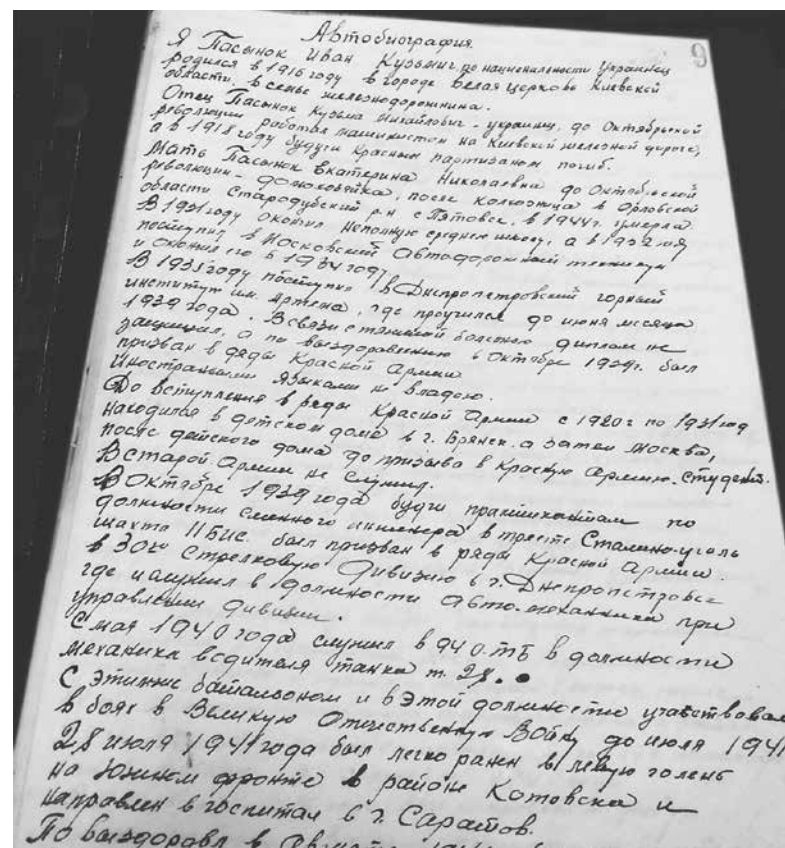 Автобиография.
9
Я Пасынок Иван Кузьмич, по национальности Украинец
родился в 1916 году в городе Белая церковь Киевской
области. в семье железнодорожника.
Отец Пасынок Кузьма Михайлович - украинец, до Октябрьской
революции работал машинистом на Киевской железной дороге,
а в 1918 году будучи красным партизаном погиб.
Мать Пасынок Екатерина Николаевна до Октябрьской
революции - домохозяйка, после колхозница в Орловской
области Стародубский р-н с. Пятовск, в 1944 г. умерла
В 1931 году окончил неполную среднюю школу, а в 1932 году
поступил в Московский Автодорожный техникум
и окончил его в 1934 году.
В 1935 году поступил в Днепропетровский горный
институт им. Артема, где проучился до июня месяца
1939 года. В связи с тяжелой болезнью диплом не
защищал, а по выздоравлению в Октябре 1939 г. был
призван в ряды Красной Армии
Иностранными языками не владею.
До вступления в ряды Красной Армии с 1920 г по 1931 год
находился в детском доме в г. Брянск. а затем Москва,
после детского дома до призыва в Красную Армию - студент.
В старой Армии не служил.
В Октябре 1939 года будучи практикантом по
должности сменного инженера в тресте Сталино-уголь
шахта был призван в ряды Красной Армии.
в 30ю Стрелковую Дивизию в г. Днепропетровск
где и служил в должности Авто-механика при
управлении дивизии.
С мая 1940 года служил в 94 о.тб в должности
механика водителя танка т. 28.
С этим же батальоном и в этой должности участвовал
в боях в Великую Отечественную Войну до июля 1941
28 июля 1941 года был легко ранен в левую голень
на Южном фронте в районе Котовска и
направлен в госпиталь в г. Саратов.
По выздоравл в